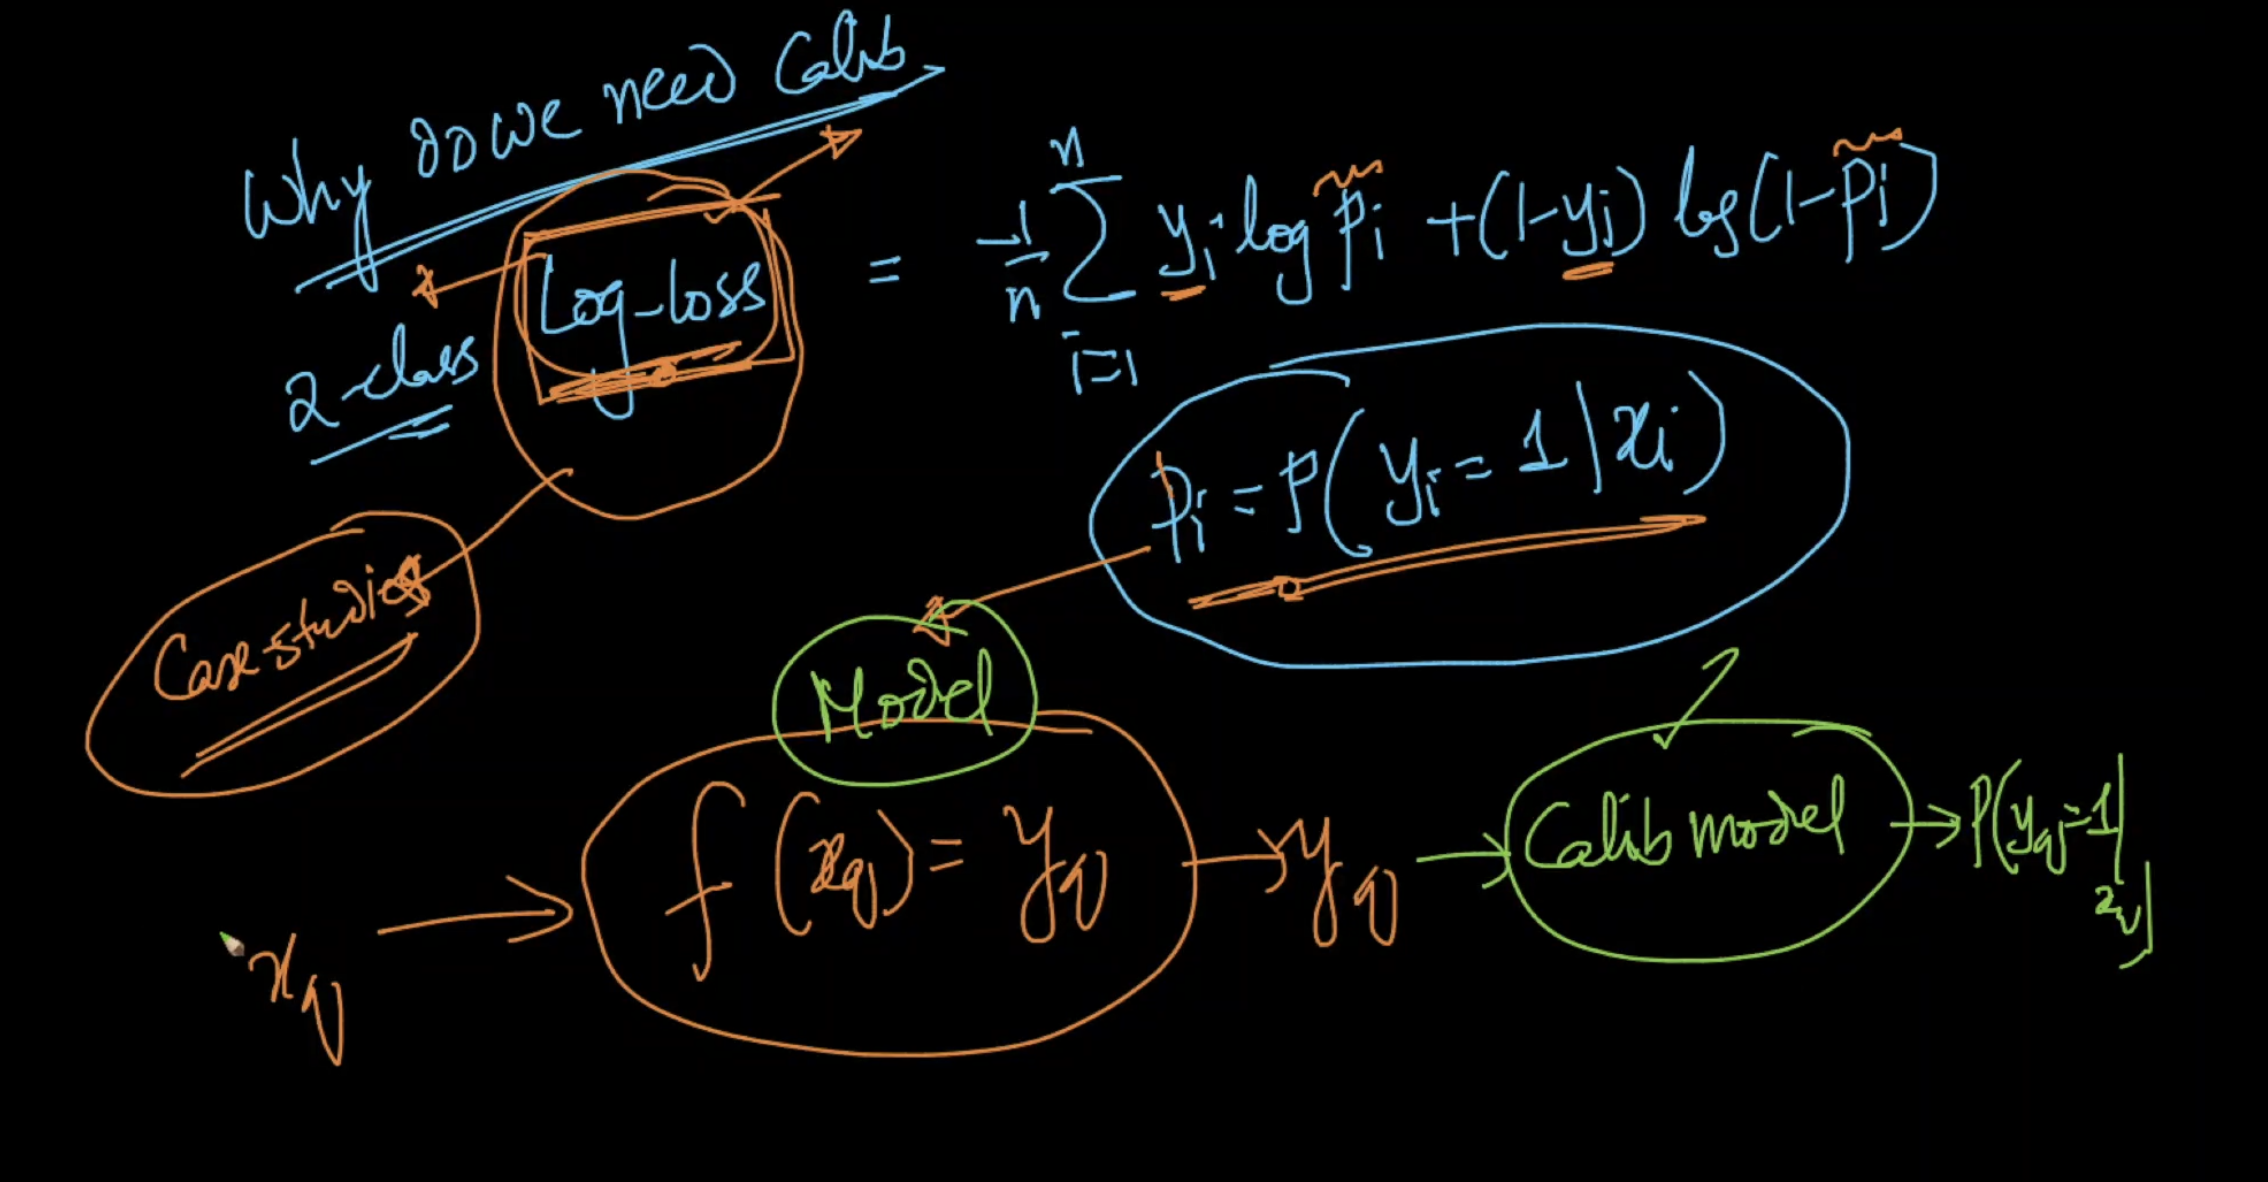 Why do we need Calib
2-class
Log-loss = -1/n Σ_{i=1}^{n} y_i · log p_i + (1-y_i) log(1-p_i)
p_i = P(y_i = 1 | x_i)
Case-studies
Model
x_q → f(x_q) = y_q → y_q → Calib model → P(y_q=1|
x_q)